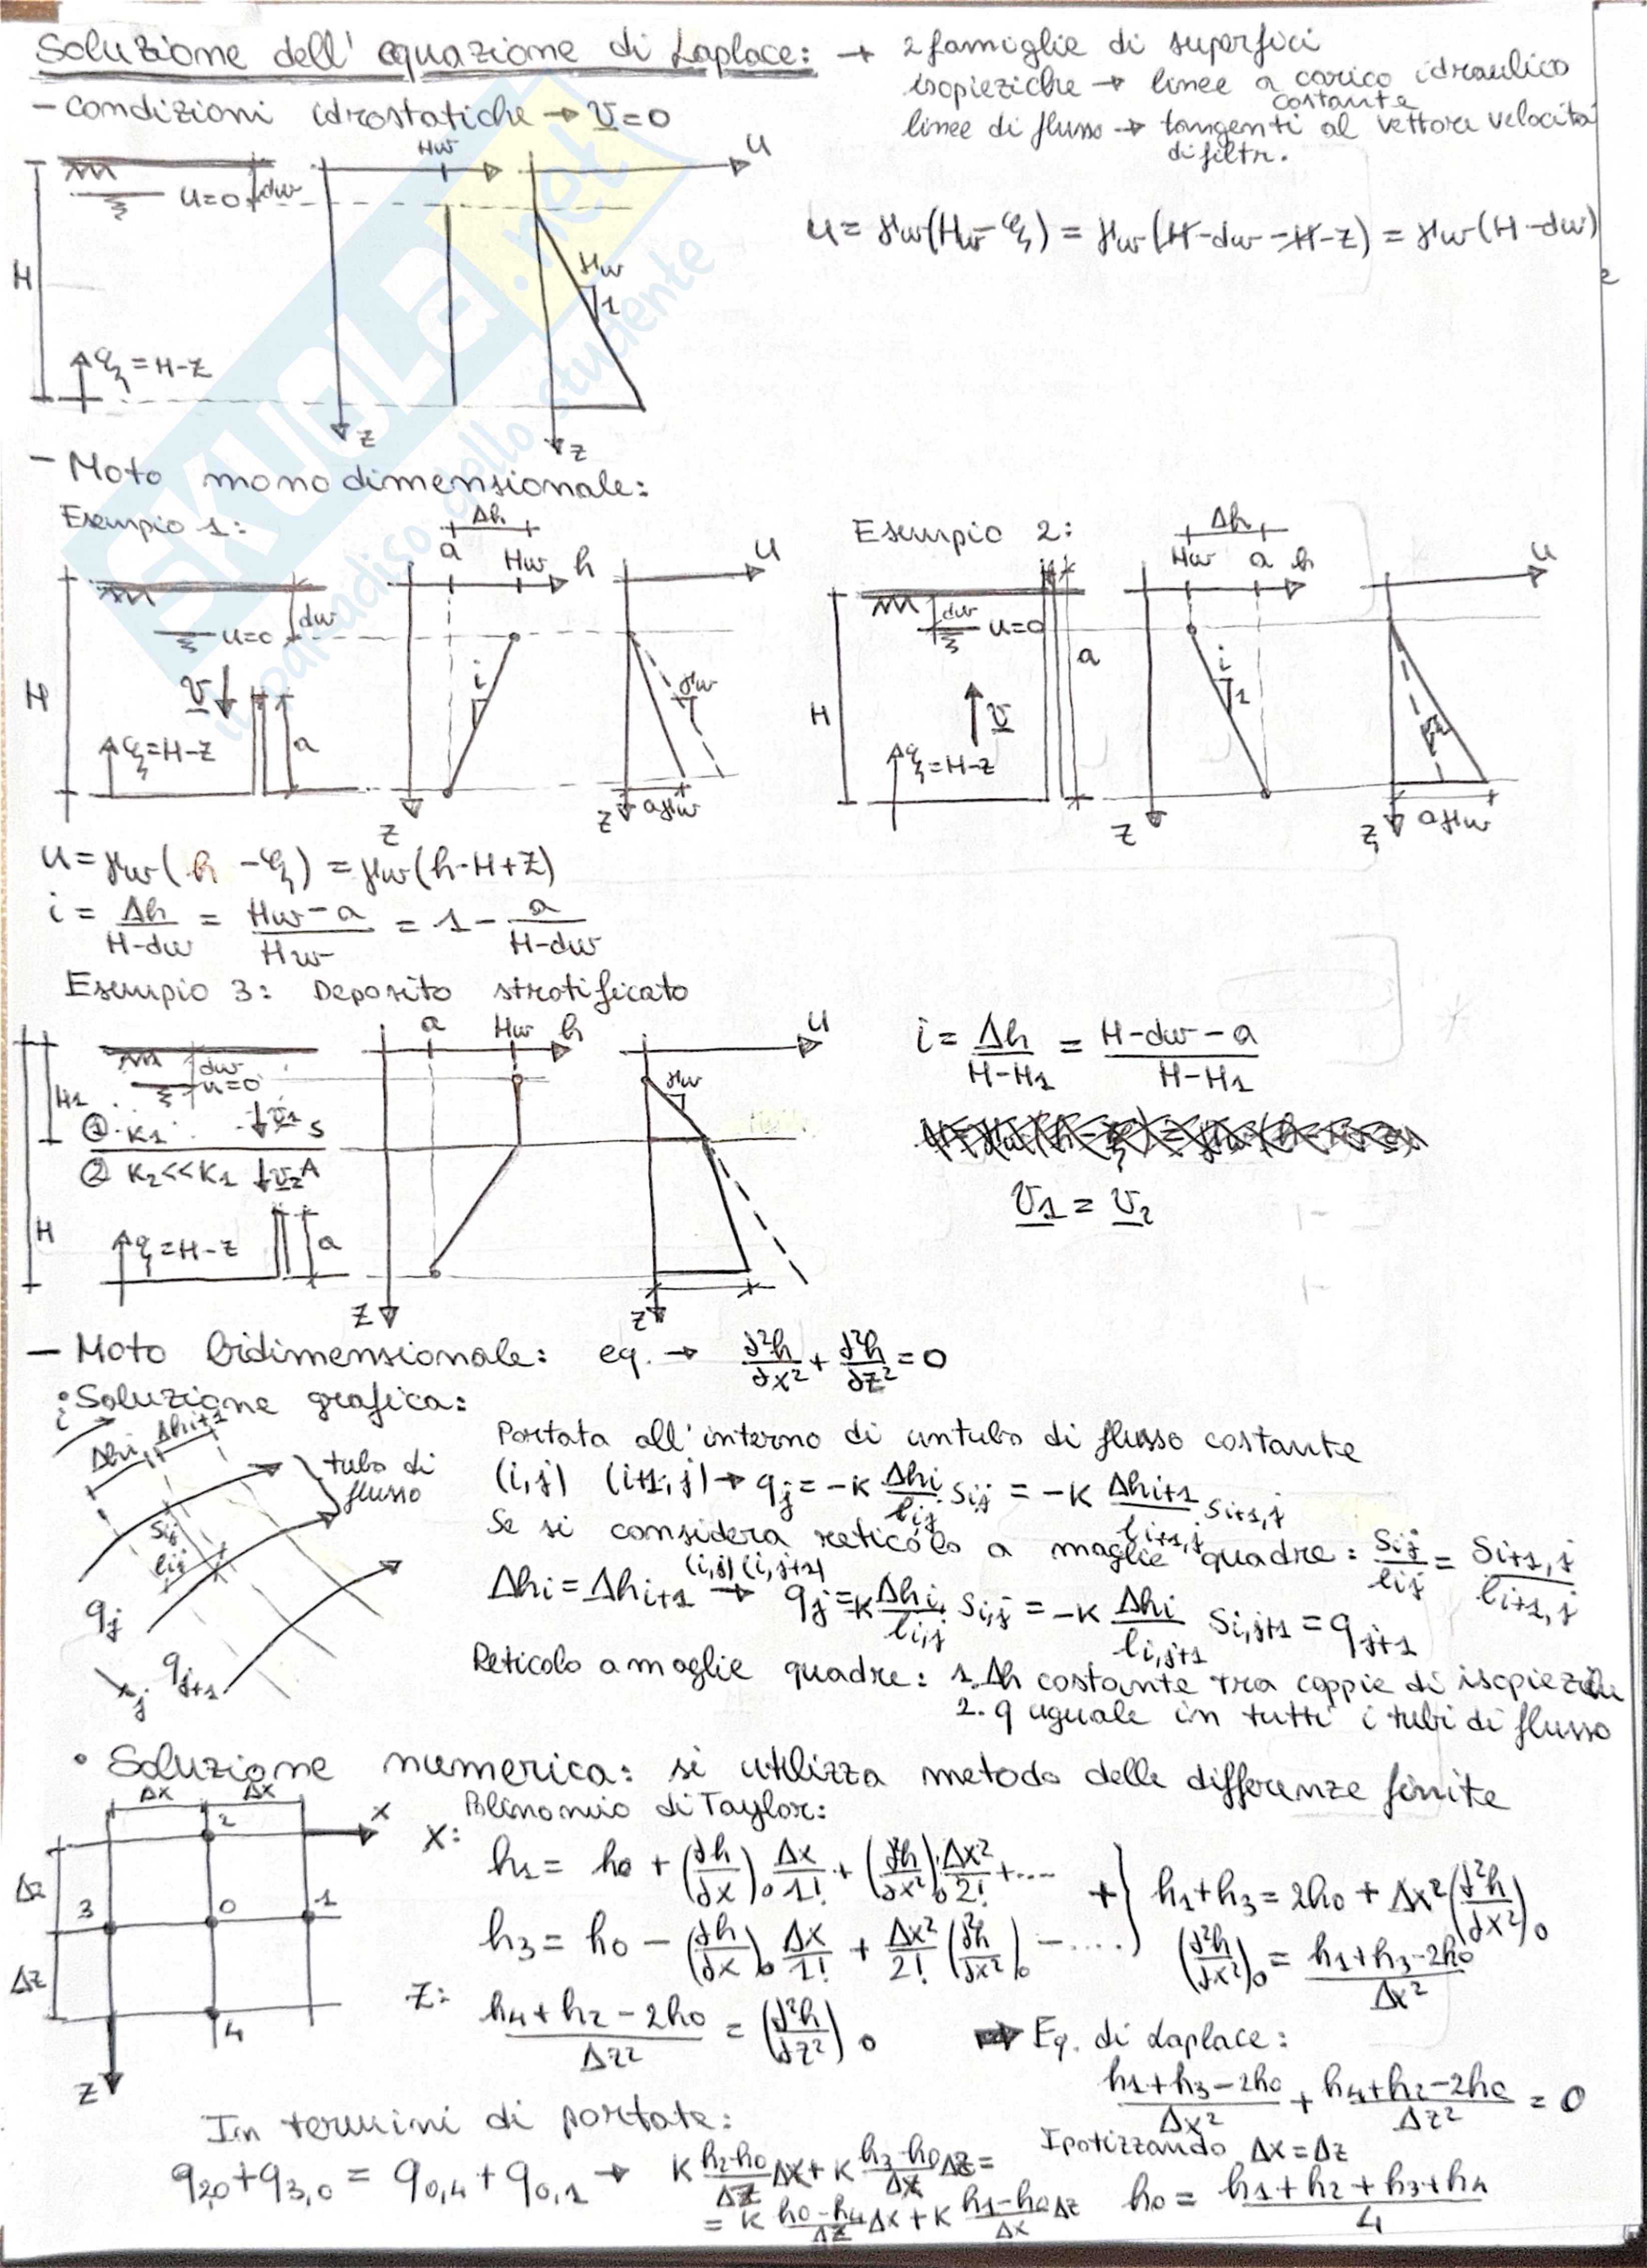 Soluzione dell'equazione di Laplace: → 2 famiglie di superfici
isopieziche → linee a carico idraulico costante
linee di flusso → tangenti al vettore velocità di filtr.
- Condizioni idrostatiche → v = 0
Hw u
u=0 dw
H
γw
1
ξ = H-z
z z
u = γw(Hw-ξ) = γw(H-dw-H-z) = γw(H-dw)
- Moto monodimensionale:
Esempio 1:
Δh
a Hw h u
dw
u=0
H
v
i
γw
ξ=H-z
a
aγw
z z
Esempio 2:
Δh
Hw a h u
dw
u=0
a
H
v
i
1
γw
ξ=H-z
aγw
z z
u = γw(h-ξ) = γw(h-H+z)
i = Δh/(H-dw) = (Hw-a)/Hw = 1 - a/(H-dw)
Esempio 3: Deposito stratificato
a Hw h u
dw
u=0
H1
γw
① K1 v1 S
② K2<<K1 v2 A
H
ξ=H-z
a
z z
i = Δh/(H-H1) = (H-dw-a)/(H-H1)
v1 = v2
- Moto bidimensionale: eq. → ∂²h/∂x² + ∂²h/∂z² = 0
• Soluzione grafica:
i
Δhi Δhi+1
tubo di flusso
Sij
lij
qj
qj+1
j
Portata all'interno di un tubo di flusso costante
(i,j) (i+1,j) → qj = -K Δhi/lij Sij = -K Δhi+1/li+1,j Si+1,j
Se si considera reticolo a maglie quadre: Sij/lij = Si+1,j/li+1,j
Δhi = Δhi+1 (i,j)(i,j+1) → qj = -K Δhi/li,j Si,j = -K Δhi/li,j+1 Si,j+1 = qj+1
Reticolo a maglie quadre: 1. Δh costante tra coppie di isopieziche
2. q uguale in tutti i tubi di flusso
• Soluzione numerica: si utilizza metodo delle differenze finite
Δx Δx
x
2
Δz
3 0 1
Δz
4
z
Polinomio di Taylor:
x:
h1 = h0 + (∂h/∂x)0 Δx/1! + (∂²h/∂x²)0 Δx²/2! + ....
h3 = h0 - (∂h/∂x)0 Δx/1! + Δx²/2! (∂²h/∂x²)0 - ....
+} h1+h3 = 2h0 + Δx²(∂²h/∂x²)0
(∂²h/∂x²)0 = (h1+h3-2h0)/Δx²
z: (h4+h2-2h0)/Δz² = (∂²h/∂z²)0
⇒ Eq. di Laplace:
(h1+h3-2h0)/Δx² + (h4+h2-2h0)/Δz² = 0
In termini di portate:
q2,0 + q3,0 = q0,4 + q0,1 → K (h2-h0)/Δz Δx + K (h3-h0)/Δx Δz =
= K (h0-h4)/Δz Δx + K (h1-h0)/Δx Δz
Ipotizzando Δx = Δz
h0 = (h1+h2+h3+h4)/4
SKUOLA.net
il paradiso dello studente